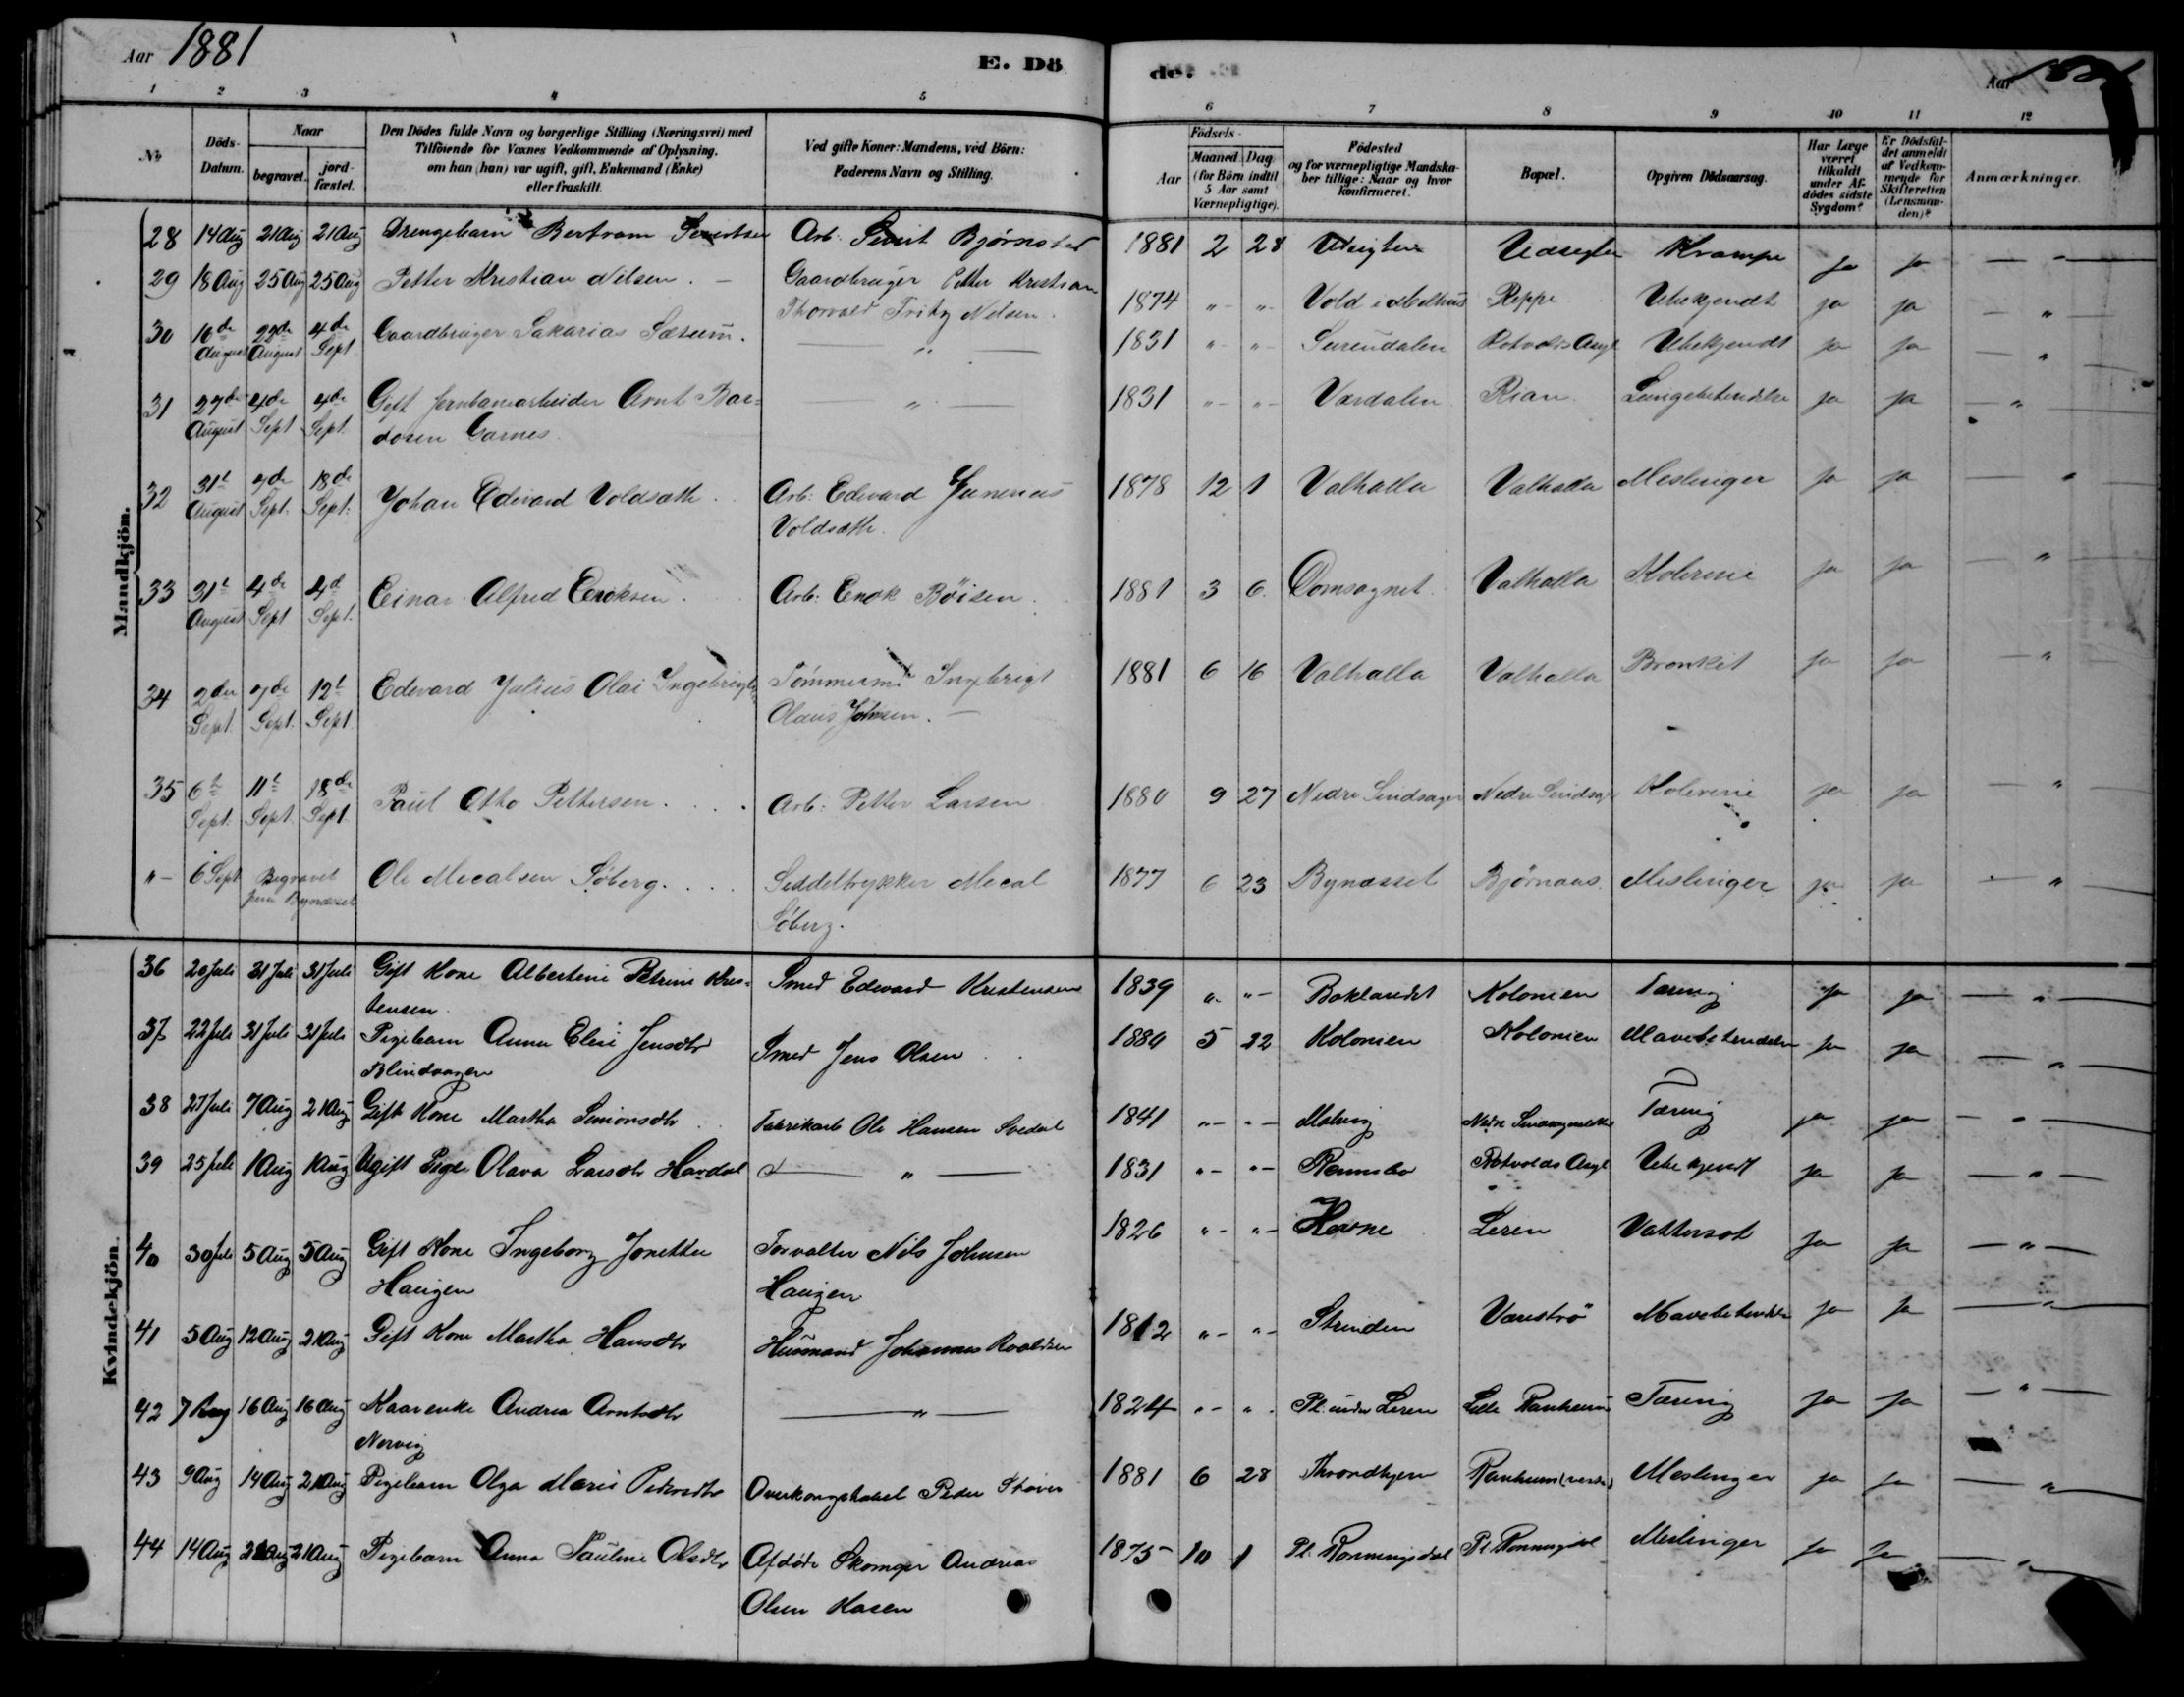 Aar 1881
E. Dö
de.
Aar
1 2 3 4 5
6 7 8 9 10 11 12
No
Döds-Datum.
Naar
begravet.
jord-fæstet.
Den Dödes fulde Navn og borgerlige Stilling (Næringsvei) med
Tilföiende for Voxnes Vedkommende af Oplysning,
om han (han) var ugift, gift, Enkemand (Enke)
eller fraskilt.
Ved gifte Koner: Mandens, ved Börn:
Faderens Navn og Stilling.
Födsels-
Aar
Maaned. Dag.
(for Börn indtil
5 Aar samt
Værnepligtige).
Födested
og for værnepligtige Mandska-
ber tillige: Naar og hvor
konfirmeret.
Bopæl.
Opgiven Dödsaarsag.
Har Læge
været
tilkaldt
under Af-
dödes sidste
Sygdom?
Er Dödsfal-
det anmeldt
af Vedkom-
mende for
Skifteretten
(Lensman-
den)?
Anmærkninger.
Mandkjön.
28 14 Aug 21 Aug 21 Aug Drengebarn Bertram Sivertsen Arb. Sivert Bjørnstad 1881 2 28 Udsigten Udsigten Krampe ja ja — " —
29 18 Aug 25 Aug 25 Aug Petter Kristian Nilsen. — Gaardbruger Petter Kristian
Thorvald Fritz Nilsen. 1874 " - " - Vold i Melhus Reppe Ubekjendt ja ja — " —
30 16de August 22de August 4de Sept Gaardbruger Sakarias Sæsum. — " — 1831 " - " - Surendalen Rotvolds Asyl Ubekjendt ja ja — " —
31 27de August 4de Sept 4de Sept. Gift Jernbanearbeider Arnt Bar-
dosen Garnes. — " — 1831 " - " - Værdalen Rian Lungebetendelse ja ja — " —
32 31t August 9de Sept. 18de Sept. Johan Edevard Voldsæth. Arb. Edevard Junenius
Voldsæth. 1878 12 1 Valhalla Valhalla Meslinger ja ja — " —
33 31t August 4de Sept 4d Sept. Einar Alfred Enoksen. Arb: Enok Böisen. 1881 3 6 Domsognet Valhalla Kolerine ja ja — " —
34 2den Sept. 9de Sept. 12t Sept. Edevard Julius Olai Ingebrigts Tömmerm. Ingebrigt
Olaus Johnsen. — 1881 6 16 Valhalla Valhalla Bronkit ja ja — " —
35 6t Sept. 11t Sept. 18de Sept. Paul Otto Pettersen. Arb: Petter Larsen 1880 9 27 Nedre Sindsager Nedre Sindsag Kolerine ja ja — " —
" - 6 Sept Begravet
fra Bynæsset Ole Mecalsen Söberg. Seddeltrykker Mecal
Söberg. 1877 6 23 Bynæsset Bjørnaas. Meslinger ja ja — " —
Kvindekjön.
36 20 Juli 31 Juli 31 Juli Gift Kone Albertine Petrine Kris-
tensen. Smed Edevard Kristensen 1839 " - " - Baklandet Kolonien Tæring ja ja — " —
37 22 Juli 31 Juli 31 Juli Pigebarn Anna Elise Jensdtr
Blindvagen Smed Jens Olsen 1880 5 22 Kolonien Kolonien Mavebetendelse ja ja — " —
38 27 Juli 7 Aug 21 Aug Gift Kone Martha Simonsdtr Fabrikarb Ole Hansen Svedal 1841 " - " - Malvig Tæring ja ja — " —
39 25 Juli 1 Aug 1 Aug Ugift Pige Olava Larsdtr Hardal — " — 1831 " - " - Rennebo Rotvolds Asyl Ubekjendt ja ja — " —
40 30 Juli 5 Aug 5 Aug Gift Kone Ingeborg Jonette
Haugen Forvalter Nils Johnsen
Haugen 1826 " - " - Hevne Leren Vattersot ja ja — " —
41 5 Aug 12 Aug 21 Aug Gift Kone Martha Hansdtr Husmand Johannes Roaldsen 1812 " - " - Strinden Væreströ Mavebetendelse ja ja — " —
42 7 Aug 16 Aug 16 Aug Kaarenke Andrea Arntsdtr
Nervig — " — 1824 " - " - Pl. under Leren Lille Ranheim Tæring ja ja — " —
43 9 Aug 14 Aug 21 Aug Pigebarn Olga Marie Pedersdtr Overkonstabel Peder Støver 1881 6 28 Throndhjem Ranheim (vestre) Meslinger ja ja — " —
44 14 Aug 21 Aug 21 Aug Pigebarn Anna Pauline Olsdtr Afdøde Skomager Andreas
Olsen Hasen 1875 10 1 Pl. Ronningsdal Pl. Ronningsdal Meslinger ja ja — " —